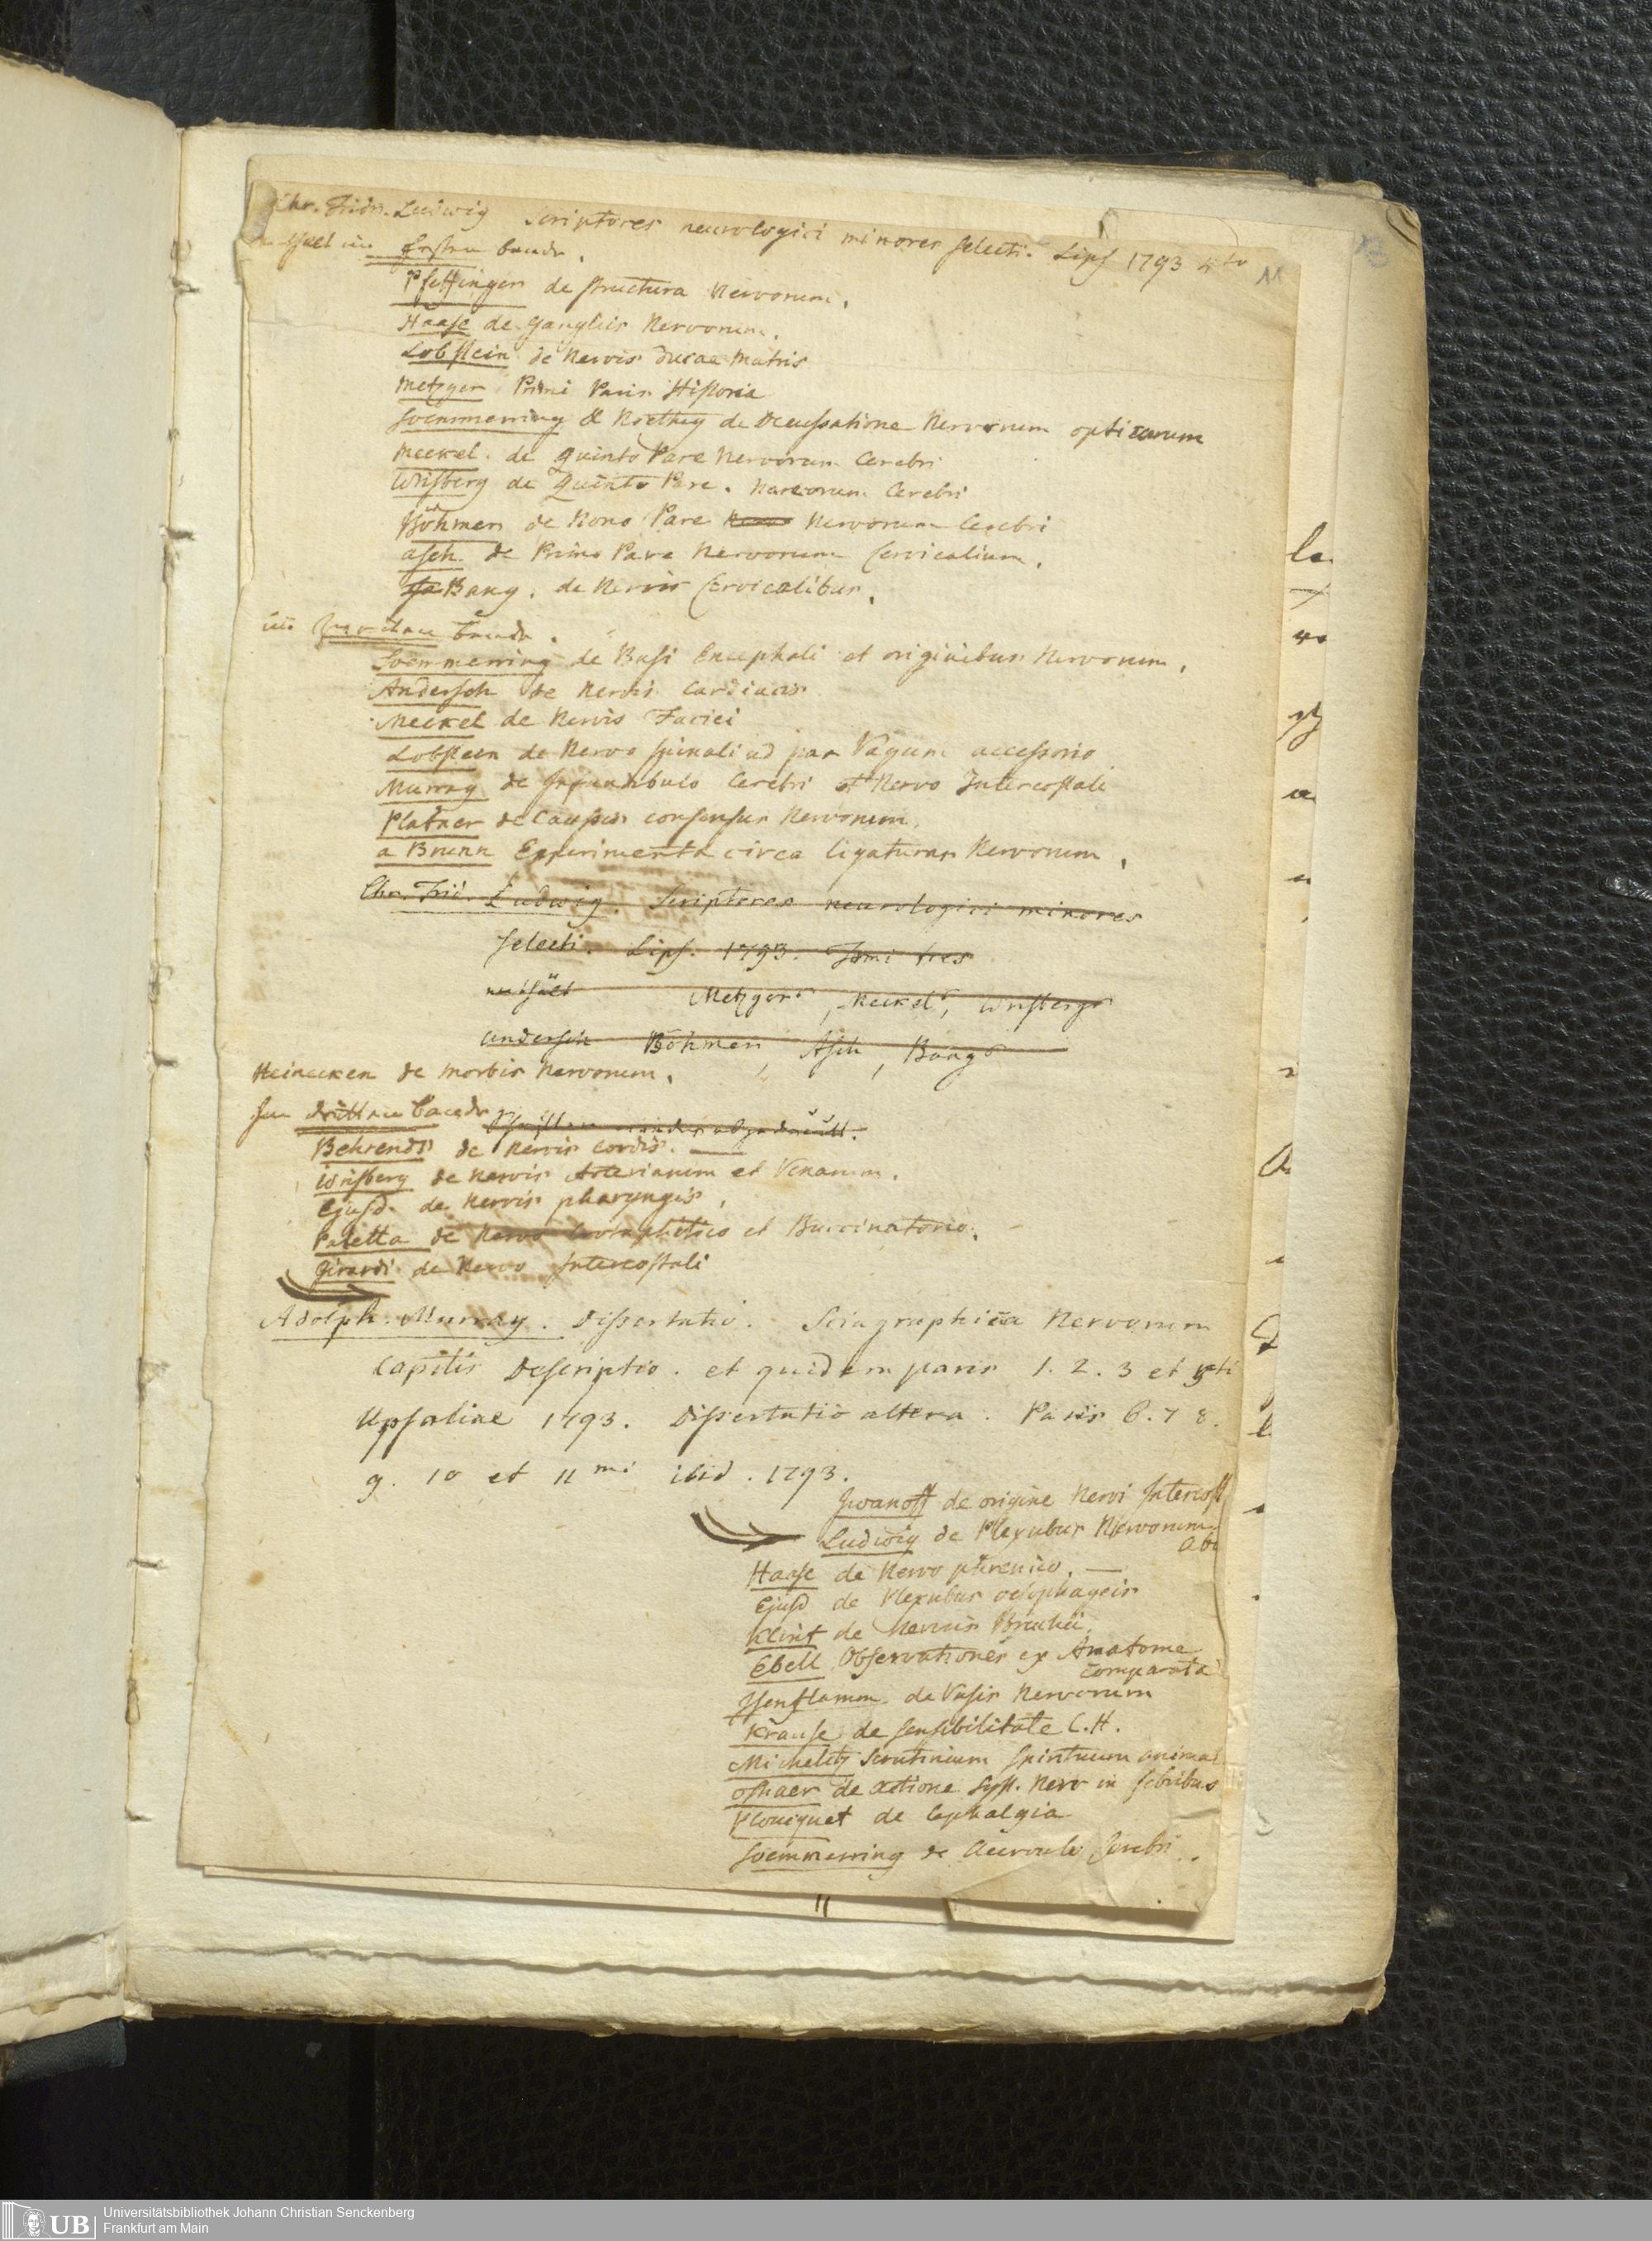 Chr. Fridr. Ludwig Scriptores neurologici minores selecti. Lips 1793 4to
11
13
im ersten Bande.
Pfeffinger de structura Nervorum.
Haase de Gangliis Nervorum.
Lobstein de Nervis durae Matris
Metzger Primi Paris Historia
Soemmerring & Noethig de Decussatione Nervorum opticorum
Meckel. de Quinto Pare Nervorum Cerebri
Wrisberg de Quinto Pare. Nervorum Cerebri
Böhmer de Nono Pare Nervorum Cerebri
Asch. de Primo Pare Nervorum Cervicalium.
Bang. de Nervis Cervicalibus.
im Zweiten Bande.
Soemmerring de Basi Encephali et originibus Nervorum.
Andersch de Nervis Cardiacis
Meckel de Nervis Faciei
Lobstein de Nervo spinali ad par Vagum accessorio
Murray de Infundibulo Cerebri et Nervo Intercostali
Platner de Causis consensus Nervorum.
a Brunn Experimenta circa ligaturas Nervorum.
Chr. Frid. Ludwig. Scriptores neurologici minores
selecti. Lips. 1793. Tomi tres
enthält Metzger, Meckel, Wrisberg
Andersch Böhmer, Asch, Bang
Heinecken de morbis Nervorum.
Im dritten Bande
Behrends de Nervis cordis.
Wrisberg de Nervis Arteriarum et Venarum.
Ejusd. de Nervis pharyngis.
Paletta de Nervo Crotaphitico et Buccinatorio.
Girardi de Nervo Intercostali
Adolph. Murray. Dissertatio. Sciagraphica Nervorum
Capitis Descriptio. et quidem paris 1. 2. 3 et 5ti
Upsaliae 1793. Dissertatio altera. Paris 6. 7 8.
9. 10 et 11mi ibid. 1793.
Iwanoff de origine Nervi Intercost
Ludwig de Plexubus Nervorum
Ab
Haase de Nervo phrenico.
Ejusd de Plexubus oesophageis
Klint de Nervis Brachii.
Ebell Observationes ex Anatome
comparata
Isenflamm. de Vasis Nervorum
Krause de sensibilitate C.H.
Michelitz Scrutinium spirituum animal
Osthaer de actione Syst. Nerv in febribus
Ploucquet de Cephalgia
Soemmerring de Acervulo Cerebri.
11
UB
Universitätsbibliothek Johann Christian Senckenberg
Frankfurt am Main